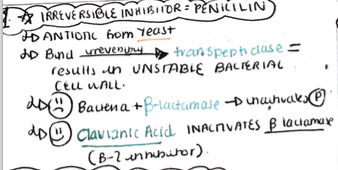 * IRREVERSIBLE INHIBITOR = PENICILIN
↳ ANTIBIOTIC from Yeast
↳ Bind irreversibly → transpeptidase =
results in UNSTABLE BACTERIAL
CELL WALL.
↳ ☹ Bacteria + β-lactamase → inactivates Ⓟ
↳ ☺ Clavianic Acid INACTIVATES β lactamase
(B-2 inhibitor).